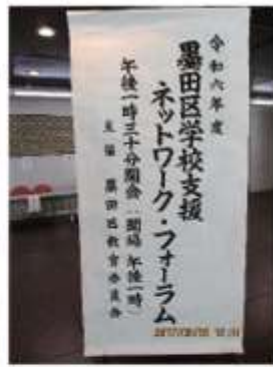 令和六年度
墨田区学校支援
ネットワーク・フォーラム
午後一時三十分開会(開場 午後一時)
主催 墨田区教育委員会